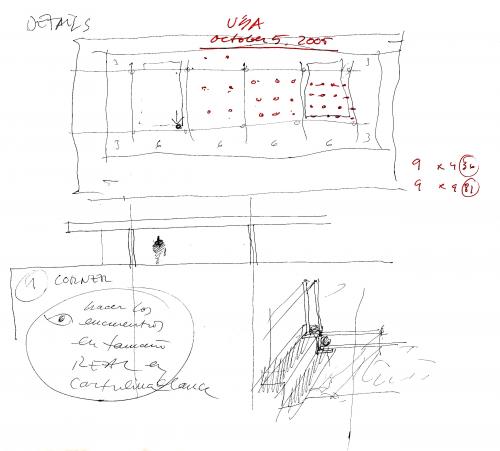 DETAILS
USA
october 5, 2005
3 3
3 6 6 6 6 3
9 x 4 36
9 x 9 81
1 CORNER
hacer los
encuentros
en tamaño
REAL en
cartulina blanca